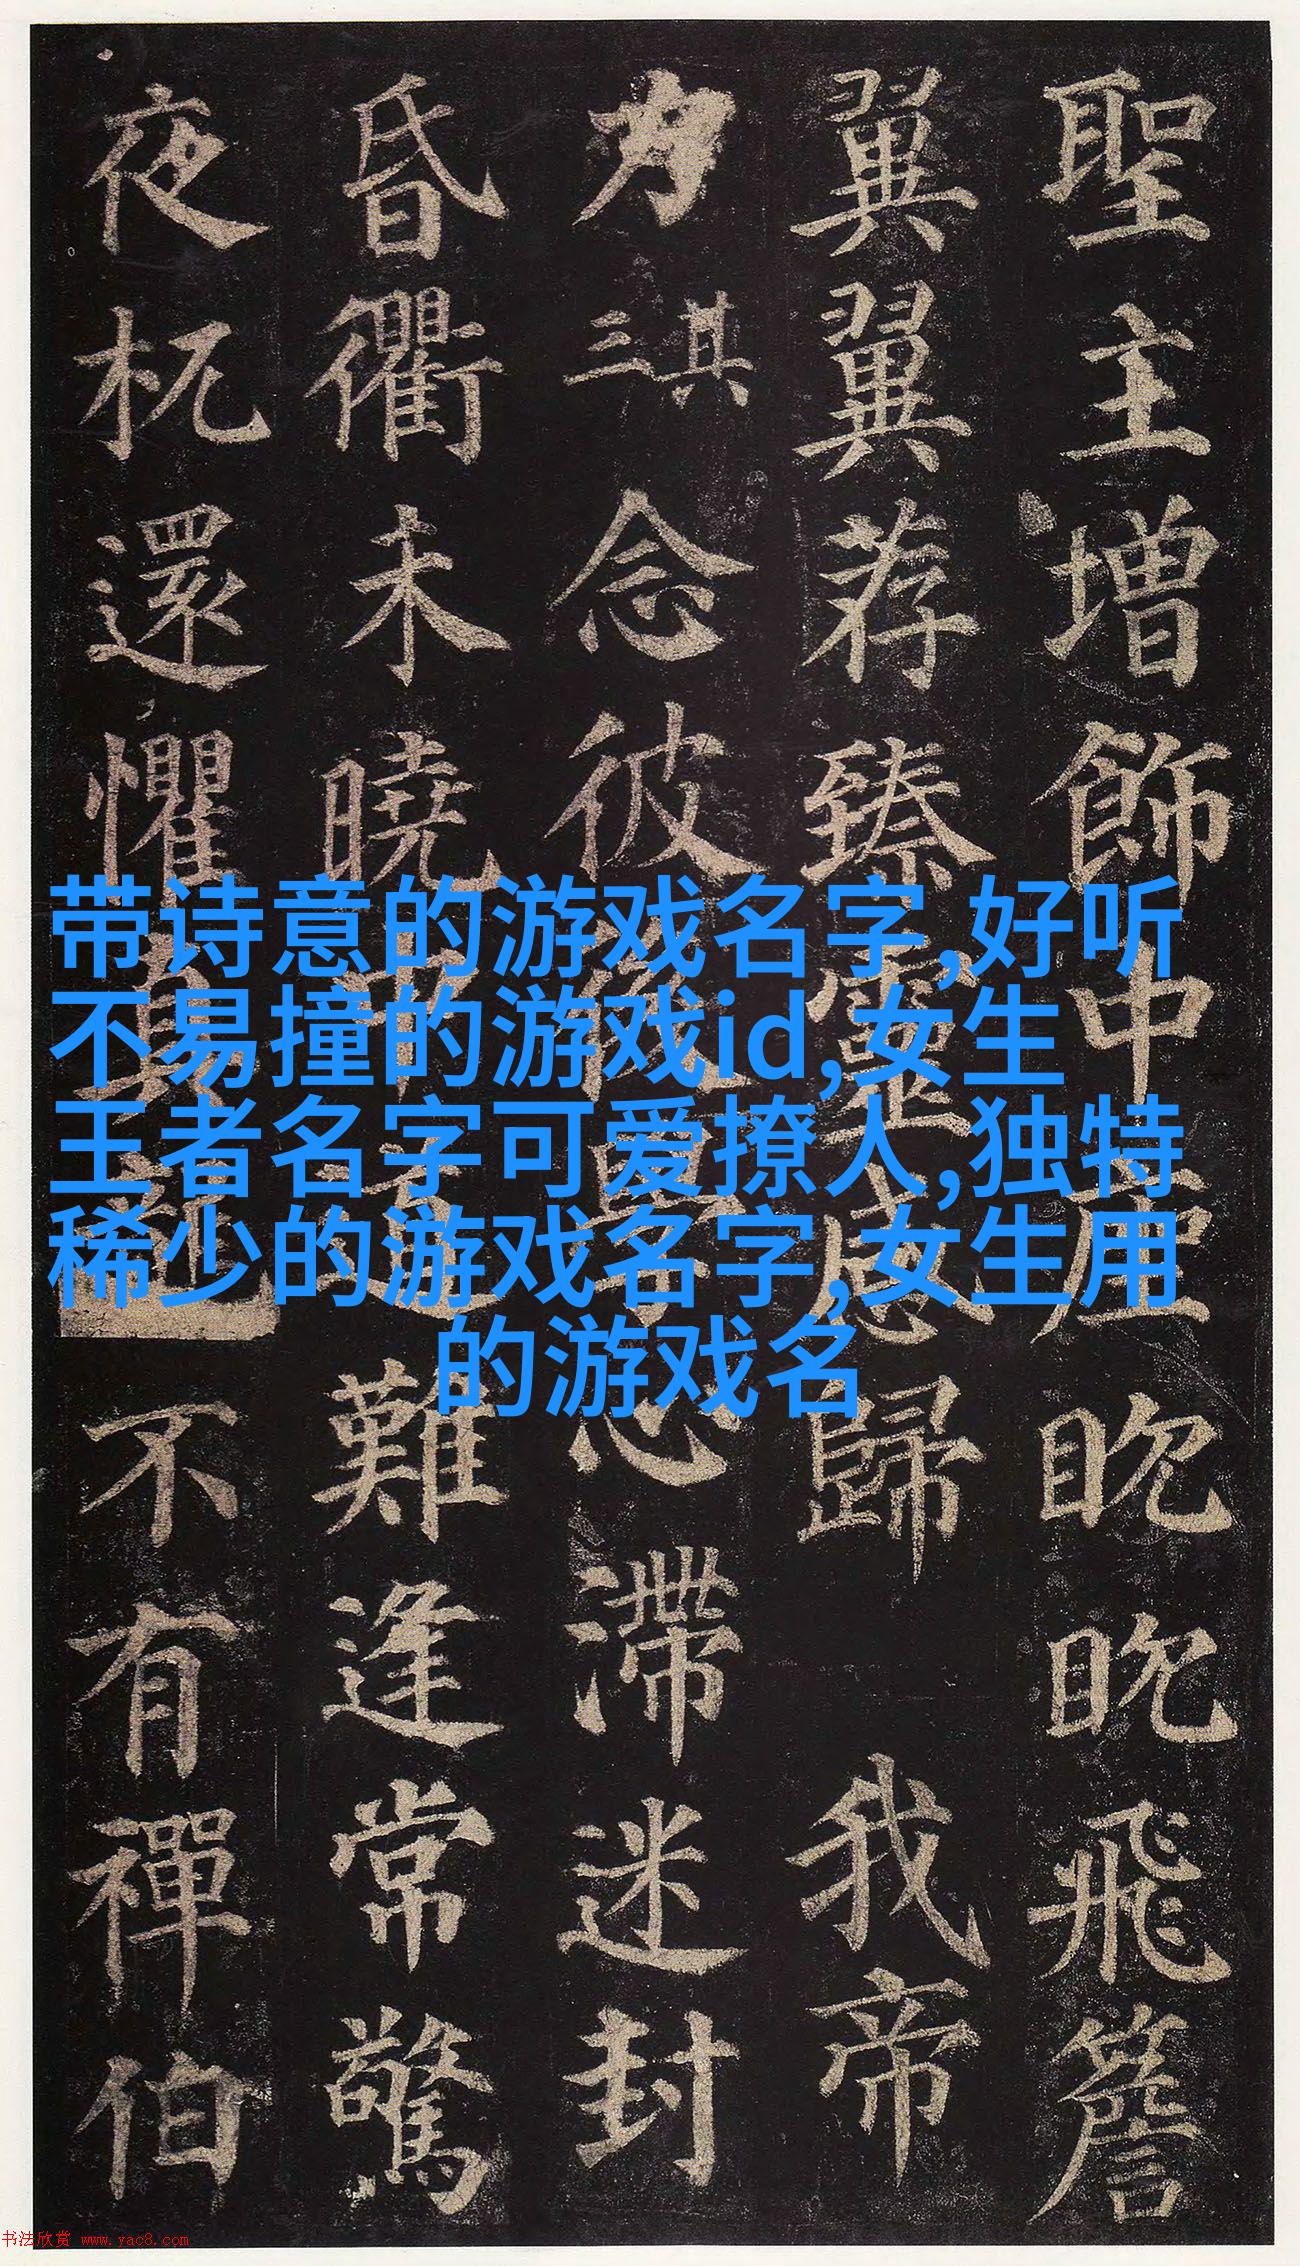 聖主增飾中座眈眈飛簷
翼翼荐臻靈感歸
我帝
力
其三
念彼後學心滯迷封
昏衢未曉難逢常驚
夜杌還懼真龍不有禪伯
带诗意的游戏名字,好听
不易撞的游戏id,女生
王者名字可爱撩人,独特
稀少的游戏名字,女生用
的游戏名
书法欣赏 www.yac8.com